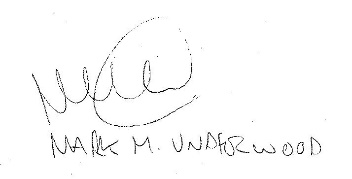 MARK M. UNDERWOOD